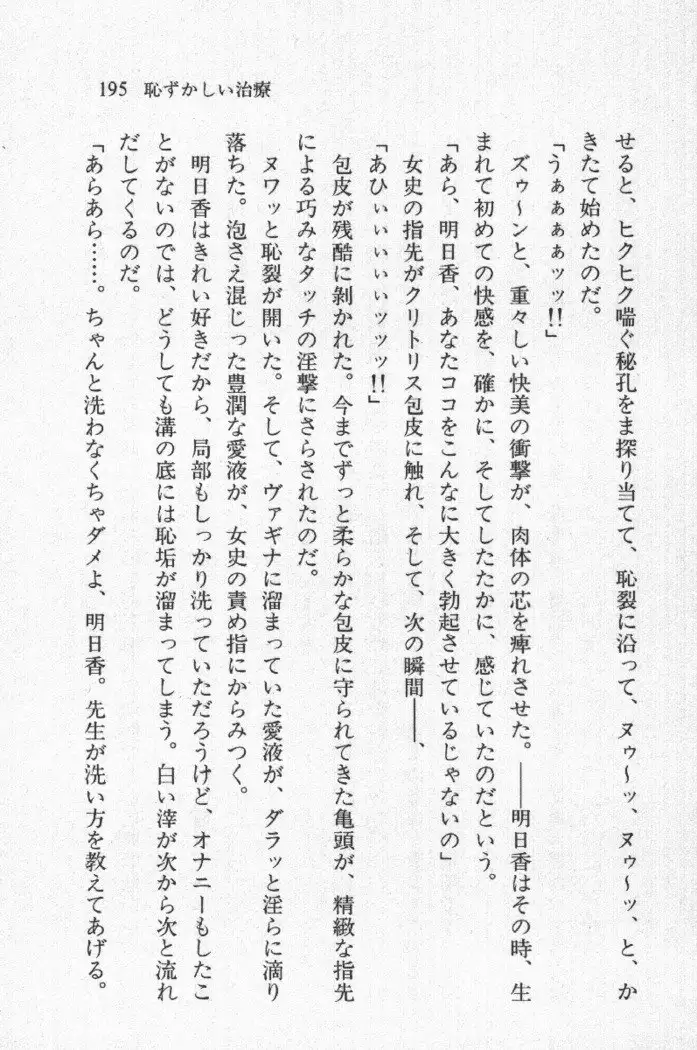 195 恥ずかしい治療
せると、ヒクヒク喘ぐ秘孔をま探り当てて、恥裂に沿って、ヌゥ〜ッ、ヌゥ〜ッ、と、か
きたて始めたのだ。
「うぁぁぁぁッッ!!」
ズゥ〜ンと、重々しい快美の衝撃が、肉体の芯を痺れさせた。――明日香はその時、生
まれて初めての快感を、確かに、そしてしたたかに、感じていたのだという。
「あら、明日香、あなたココをこんなに大きく勃起させているじゃないの」
女史の指先がクリトリス包皮に触れ、そして、次の瞬間――、
「あひぃぃぃぃぃッッッ!!」
包皮が残酷に剝かれた。今までずっと柔らかな包皮に守られてきた亀頭が、精緻な指先
による巧みなタッチの淫撃にさらされたのだ。
ヌワッと恥裂が開いた。そして、ヴァギナに溜まっていた愛液が、ダラッと淫らに滴り
落ちた。泡さえ混じった豊潤な愛液が、女史の責め指にからみつく。
明日香はきれい好きだから、局部もしっかり洗っていただろうけど、オナニーもしたこ
とがないのでは、どうしても溝の底には恥垢が溜まってしまう。白い滓が次から次と流れ
だしてくるのだ。
「あらあら……。ちゃんと洗わなくちゃダメよ、明日香。先生が洗い方を教えてあげる。